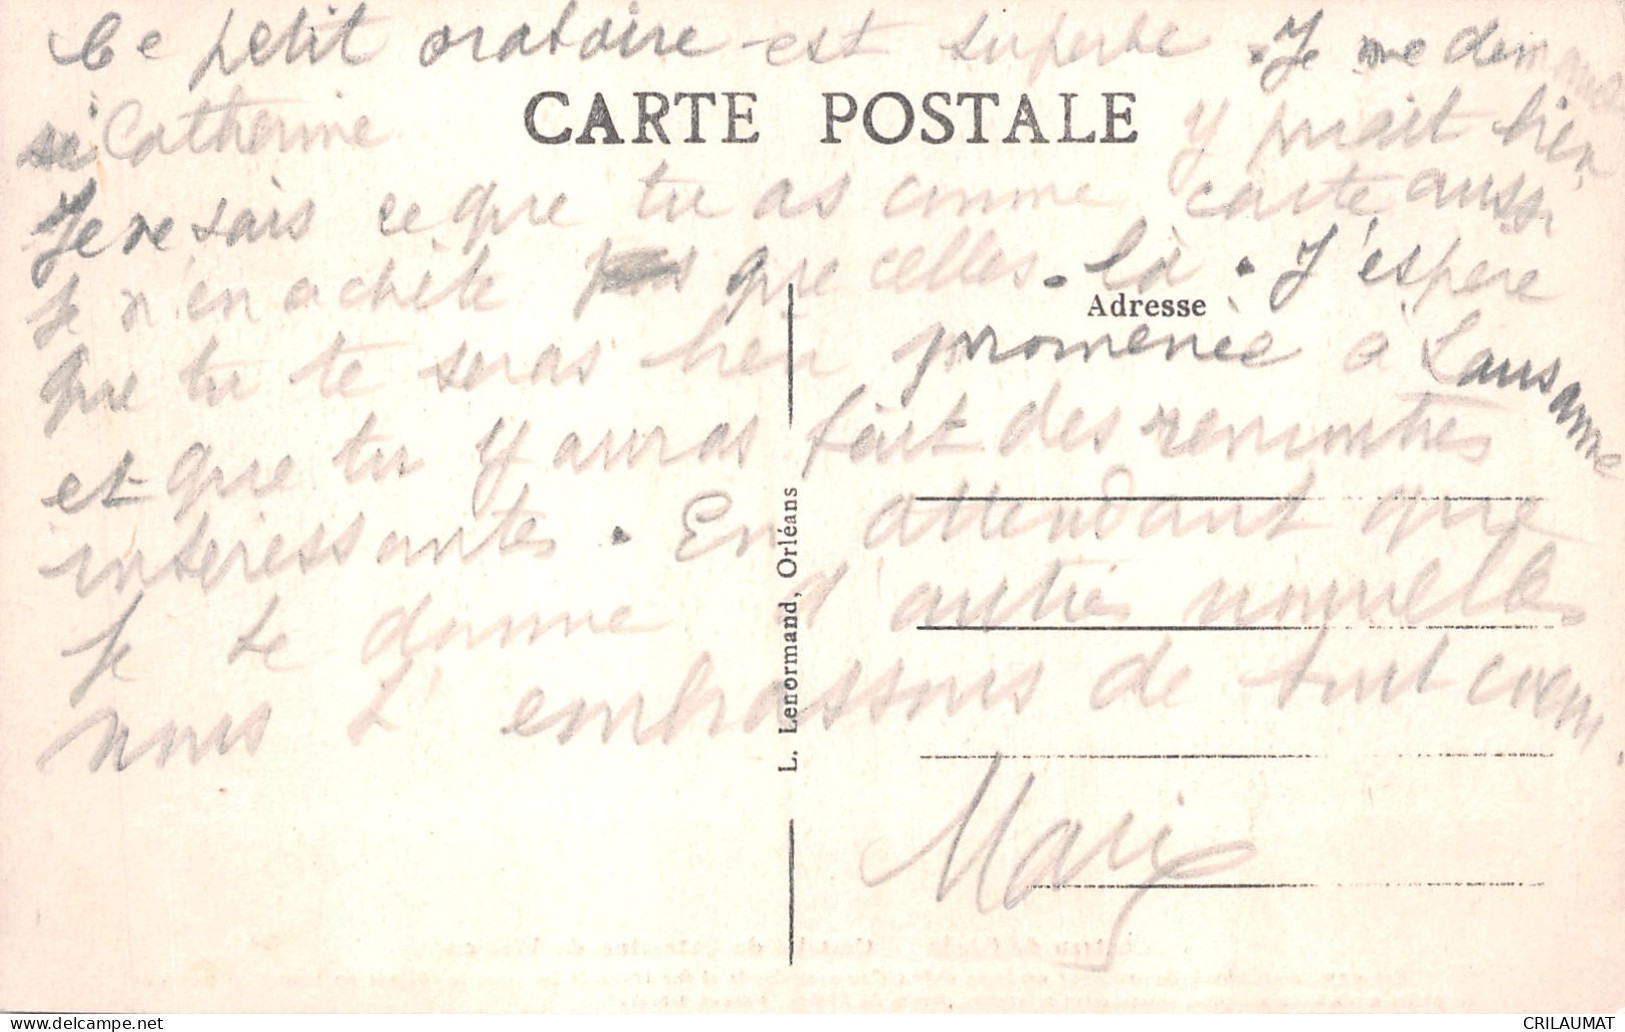 Ce petit oratoire est superbe. Je me demande
si Catherine y priait bien
CARTE POSTALE
Je ne sais ce que tu as comme carte aussi
je n'en achète pas que celles-là. J'espère
Adresse
que tu te seras bien promenée a Lausanne
et que tu y auras fait des rencontres
intéressantes. En attendant que
je te donne d'autres nouvelles
nous t'embrassons de tout coeur.
Marie
L. Lenormand, Orléans
CRILAUMAT